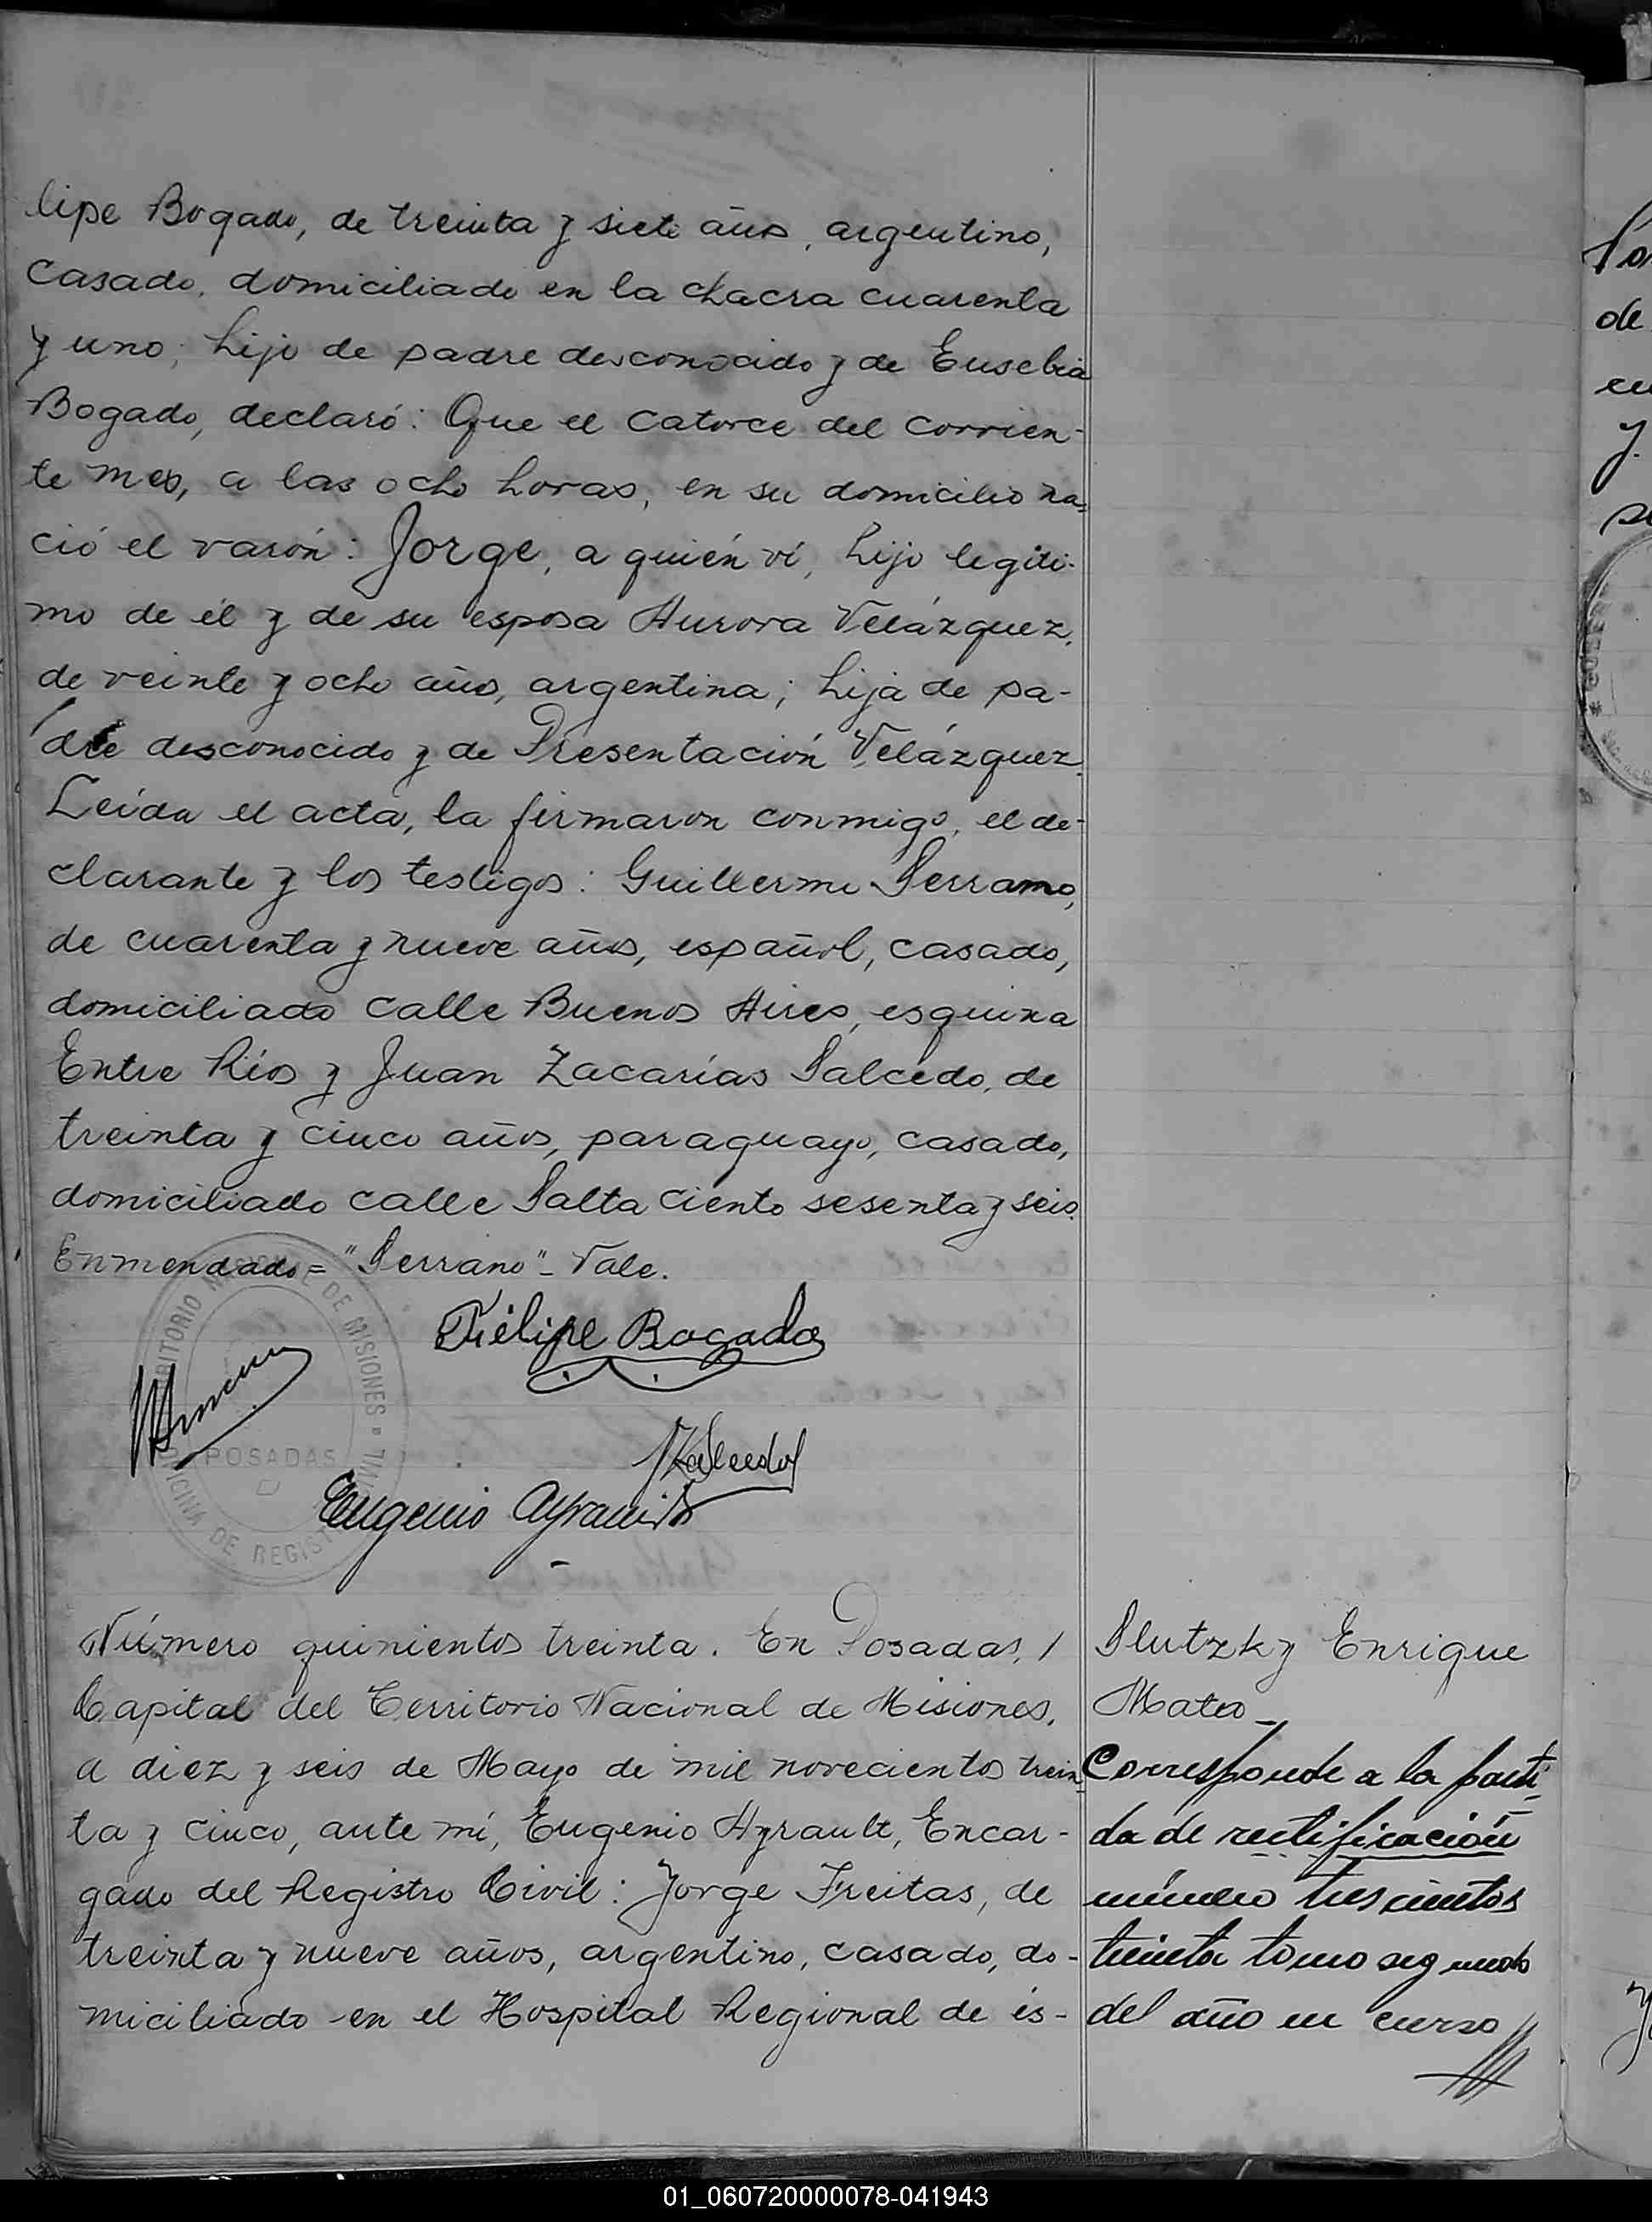 lipe Bogado, de treinta y siete años, argentino,
casado, domiciliado en la chacra cuarenta
y uno; hijo de padre desconocido y de Eusebia
Bogado, declaró: Que el catorce del corrien-
te mes, a las ocho horas, en su domicilio na-
ció el varón: Jorge, a quién ví, hijo legíti-
mo de él y de su esposa Aurora Velázquez,
de veinte y ocho años, argentina; hija de pa-
dre desconocido y de Presentación Velázquez.
Leída el acta, la firmaron conmigo, el de-
clarante y los testigos: Guillermo Serrano,
de cuarenta y nueve años, español, casado,
domiciliado calle Buenos Aires, esquina
Entre Ríos y Juan Zacarías Salcedo, de
treinta y cinco años, paraguayo, casado,
domiciliado calle Salta ciento sesenta y seis.
Enmendado = "Serrano" - Vale.
Felipe Bogado
JZSalcedo
Eugenio Ayrault
DE MISIONES
POSADAS
OFICINA DE REGISTRO
Número quinientos treinta. En Posadas, /
Capital del Territorio Nacional de Misiones,
a diez y seis de Mayo de mil novecientos trein-
ta y cinco, ante mí, Eugenio Ayrault, Encar-
gado del Registro Civil: Jorge Freitas, de
treinta y nueve años, argentino, casado, do-
miciliado en el Hospital Regional de és-
Slutzky Enrique
Mateo
Corresponde a la parti-
da de rectificación
número trescientos
treinta tomo segundo
del año en curso
01_060720000078-041943